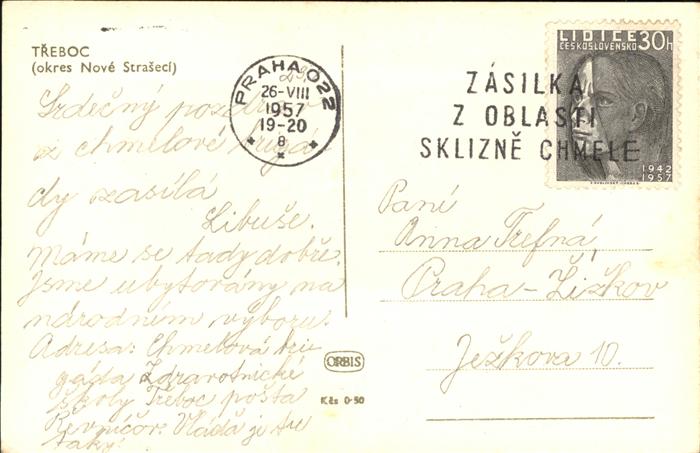 TŘEBOC
(okres Nové Strašecí)
Srdečný pozdrav
z chmelové brigá
dy zasílá
Libuše.
Máme se tady dobře.
Jsme ubytovány na
národním výboru.
Adresa: Chmelová bri
gáda Zdravotnické
školy Třeboc pošta
Řevničov. Vláďa je tu
taky!
PRAHA 022
26-VIII
1957
19-20
8
ZÁSILKA
Z OBLASTI
SKLIZNĚ CHMELE
LIDICE
ČESKOSLOVENSKO 30h
1942
1957
Paní
Anna Trefná
Praha-Žižkov
Ježkova 10.
ORBIS
Kčs 0·50